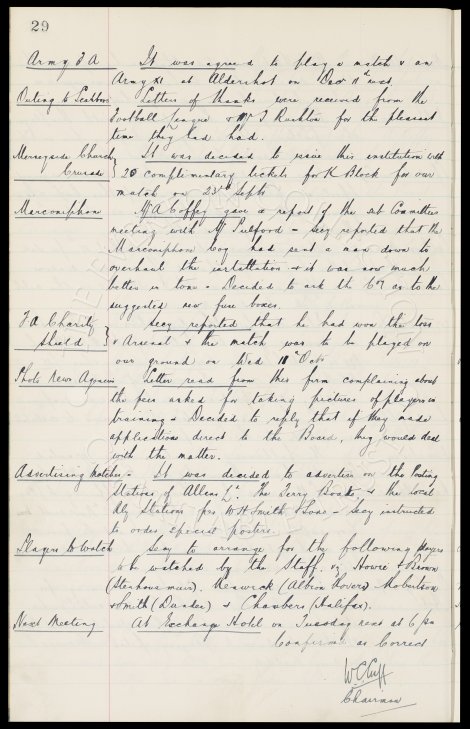 29
Army F A It was agreed to play a match v an
Army XI at Aldershot on Decr 11th next
Outing to Letters of thanks were received from the
Football League & Mr J Rushton for the pleasant
time they had had.
Merseyside Church It was decided to this institution with
Crusade 20 complimentary tickets for K Block for our
match on 23rd Septr
Marconiphon Mr A Coffey gave a report of the sub Committee
meeting with Mr Pulford - Secy reported that the
Marconiphone Coy had sent a man down to
overhaul the installation & it was now much
better in tone - Decided to ask the Coy as to the
suggested new fuse boxes.
F A Charity Secy reported that he had won the toss
Shield v Arsenal & the match was to be played on
our ground on Wed Octr
Photo News Agencies Letter read from this firm complaining about
the fees asked for taking pictures of players in
training - Decided to reply that if they made
applications direct to the Board, they would deal
with the matter.
Advertising Matches - It was decided to advertise on the Posting
Stations of Allens Ld. The Ferry Boats, & the local
Rly Stations per W H Smith & Sons - Secy instructed
to order special posters
Players to Watch Secy to arrange for the following players
to be watched by the Staff, viz Howie & Brown
(Stenhousemuir). Renwick (Albion Rovers) Robertson
& Smith (Dundee) & Chambers (Halifax).
Next Meeting At Exchange Hotel on Tuesday next at 6 pm
Confirmed as Correct
W C Cuff
Chairman